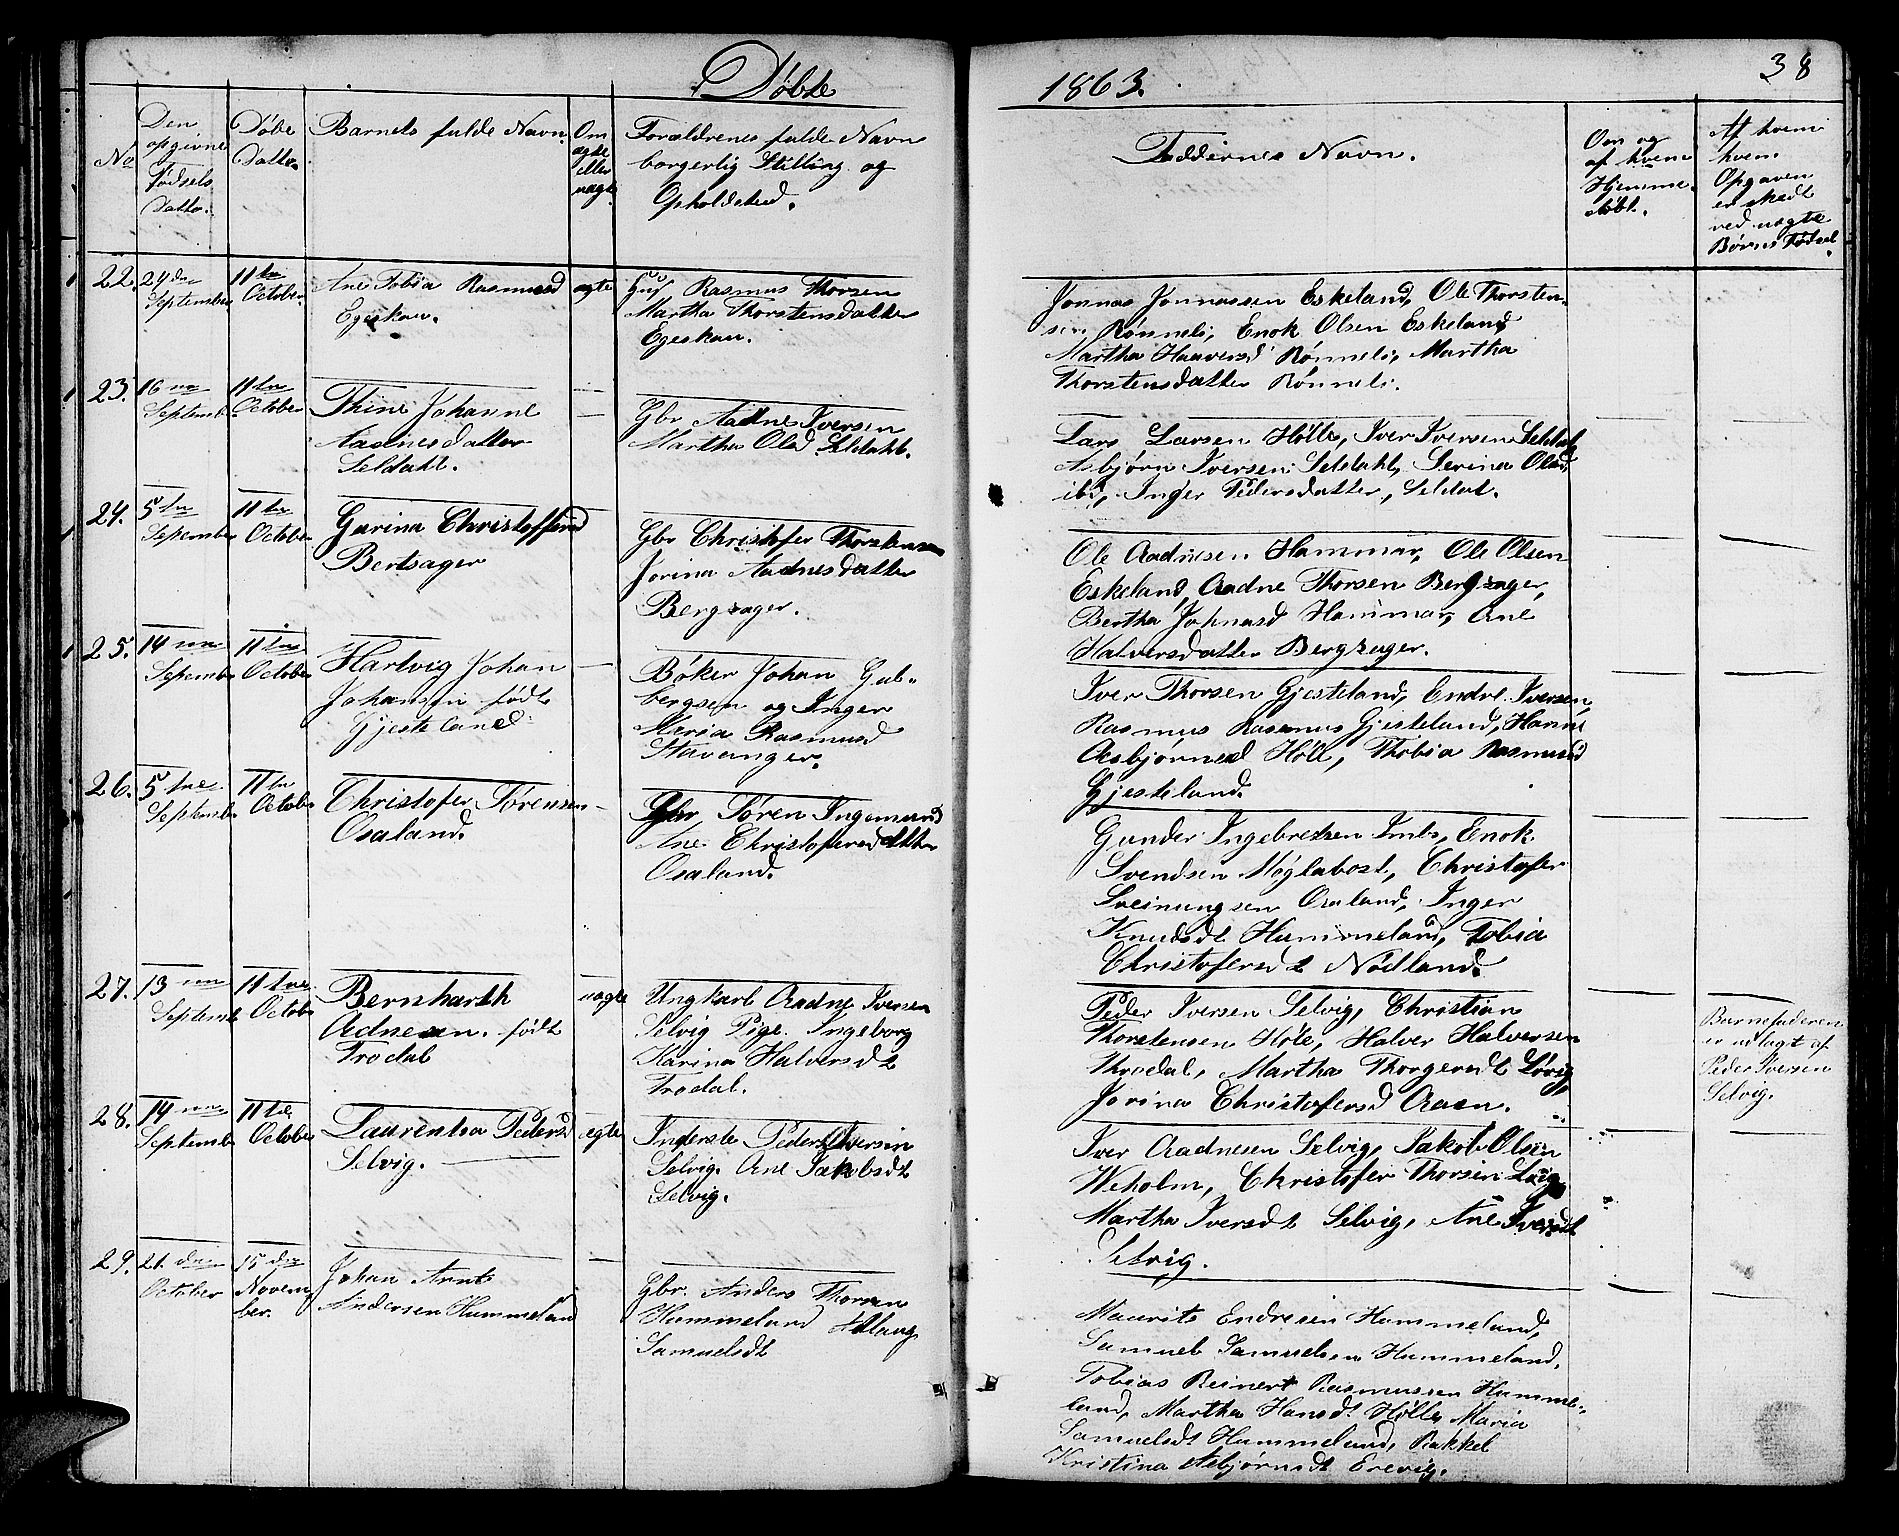 Døbte
1863.
38
No
Den opgivne Fødsels Datto.
Døbe Datto.
Barnets fulde Navn.
Om ægte eller uægte
Forældrenes fulde Navn
borgerlig Stilling og
Opholdsted.
Faddernes Navn.
Om og af hvem Hjemme døbt.
Af hvem Opgaven er skedt ved uægte Børns Fødsel.
22.
24de
September
11te
October
Ane Tobia Rasmusd
Egeskau.
ægte
Rasmus Thorsen
Martha Thorstensdatter
Egeskau.
Jonnas Jonnassen Eskeland, Ole Thorsten-
sen Rønneli, Enok Olsen Eskeland
Martha Haaversd Rønneli, Martha
Thorstensdatter Rønneli.
23.
16
Septemb
11te
October
Thine Johanne
Aadnesdatter
Seldahl.
Gbr Aadne Iversen
Martha Olsd Seldahl.
Lars Larsen Hølle, Iver Iversen Seldal
Asbjørn Iversen Seldahl, Serina Olsd
ibd, Inger Pedersdatter, Seldal.
24.
5te
September
11te
October
Garina Christoffersd
Bertsager
Gbr Christofer Thorstensen
Jorina Aadnesdatter
Bergsager.
Ole Aadnesen Hammar, Ole Olsen
Eskeland, Aadne Thorsen Bergsager,
Bertha Johnasd Hammar, Ane
Halversdatter Bergsager.
25.
14
September
11te
October
Hartvig Johan
Johansen født
Gjesteland
Bøker Johan Gul-
bergsen og Inger
Maria Rasmusd
Stavanger.
Iver Thorsen Gjesteland, Endre Iversen,
Rasmus Rasmus Gjesteland, Hanne
Asbjørnsd Höll, Thobia Rasmusd
Gjesteland.
26.
5
September
11te
October
Christofer Sørensen
Osaland.
Gbr Søren Ingemund
Ane Christofersdatter
Osaland.
Gunder Ingebretsen Imbs, Enok
Svendsen Møglabost, Christofer
Sveinungsen Osaland, Inger
Knudsdt Hummeland, Tobia
Christofersdt Nødland.
27.
13
September
11te
October
Bernharth
Adnesen. født
Trodal
uægte
Ungkarl Aadne Iversen
Selvig Pige. Ingeborg
Karina Halversdt
Trodal.
Peder Iversen Selvig, Christian
Thorstensen Høle, Halver Halversen
Throdal, Martha Thorgersdt Løvig,
Jorina Christofersd Aasen.
Barnefaderen
er udlagt af
Peder Iversen
Selvig.
28.
14
September
11te
October
Laurentsa Pedersd
Selvig.
ægte
Inderste Peder Iversen
Selvig. Ane Jakobsdt
Selvig.
Iver Aadnesen Selvig, Jakob Olsen
Weholm, Christofer Thorsen Løvig
Martha Iversdt Selvig, Ane Iversdt
Selvig.
29.
21 den
October
15 den
Novem
ber.
Johan Arnt
Andersen Hummeland
Gbr. Anders Thorsen
Hummeland Atlaug
Samuelsdt
Maurits Endresen Hummeland,
Samuel Samuelsen Hummeland,
Tobias Reinert Rasmussen Humme-
land, Martha Hansdt Hølle, Maria
Samuelsdt Hummeland, Rakkel
Kristina Asbjørnsdt Erevig.